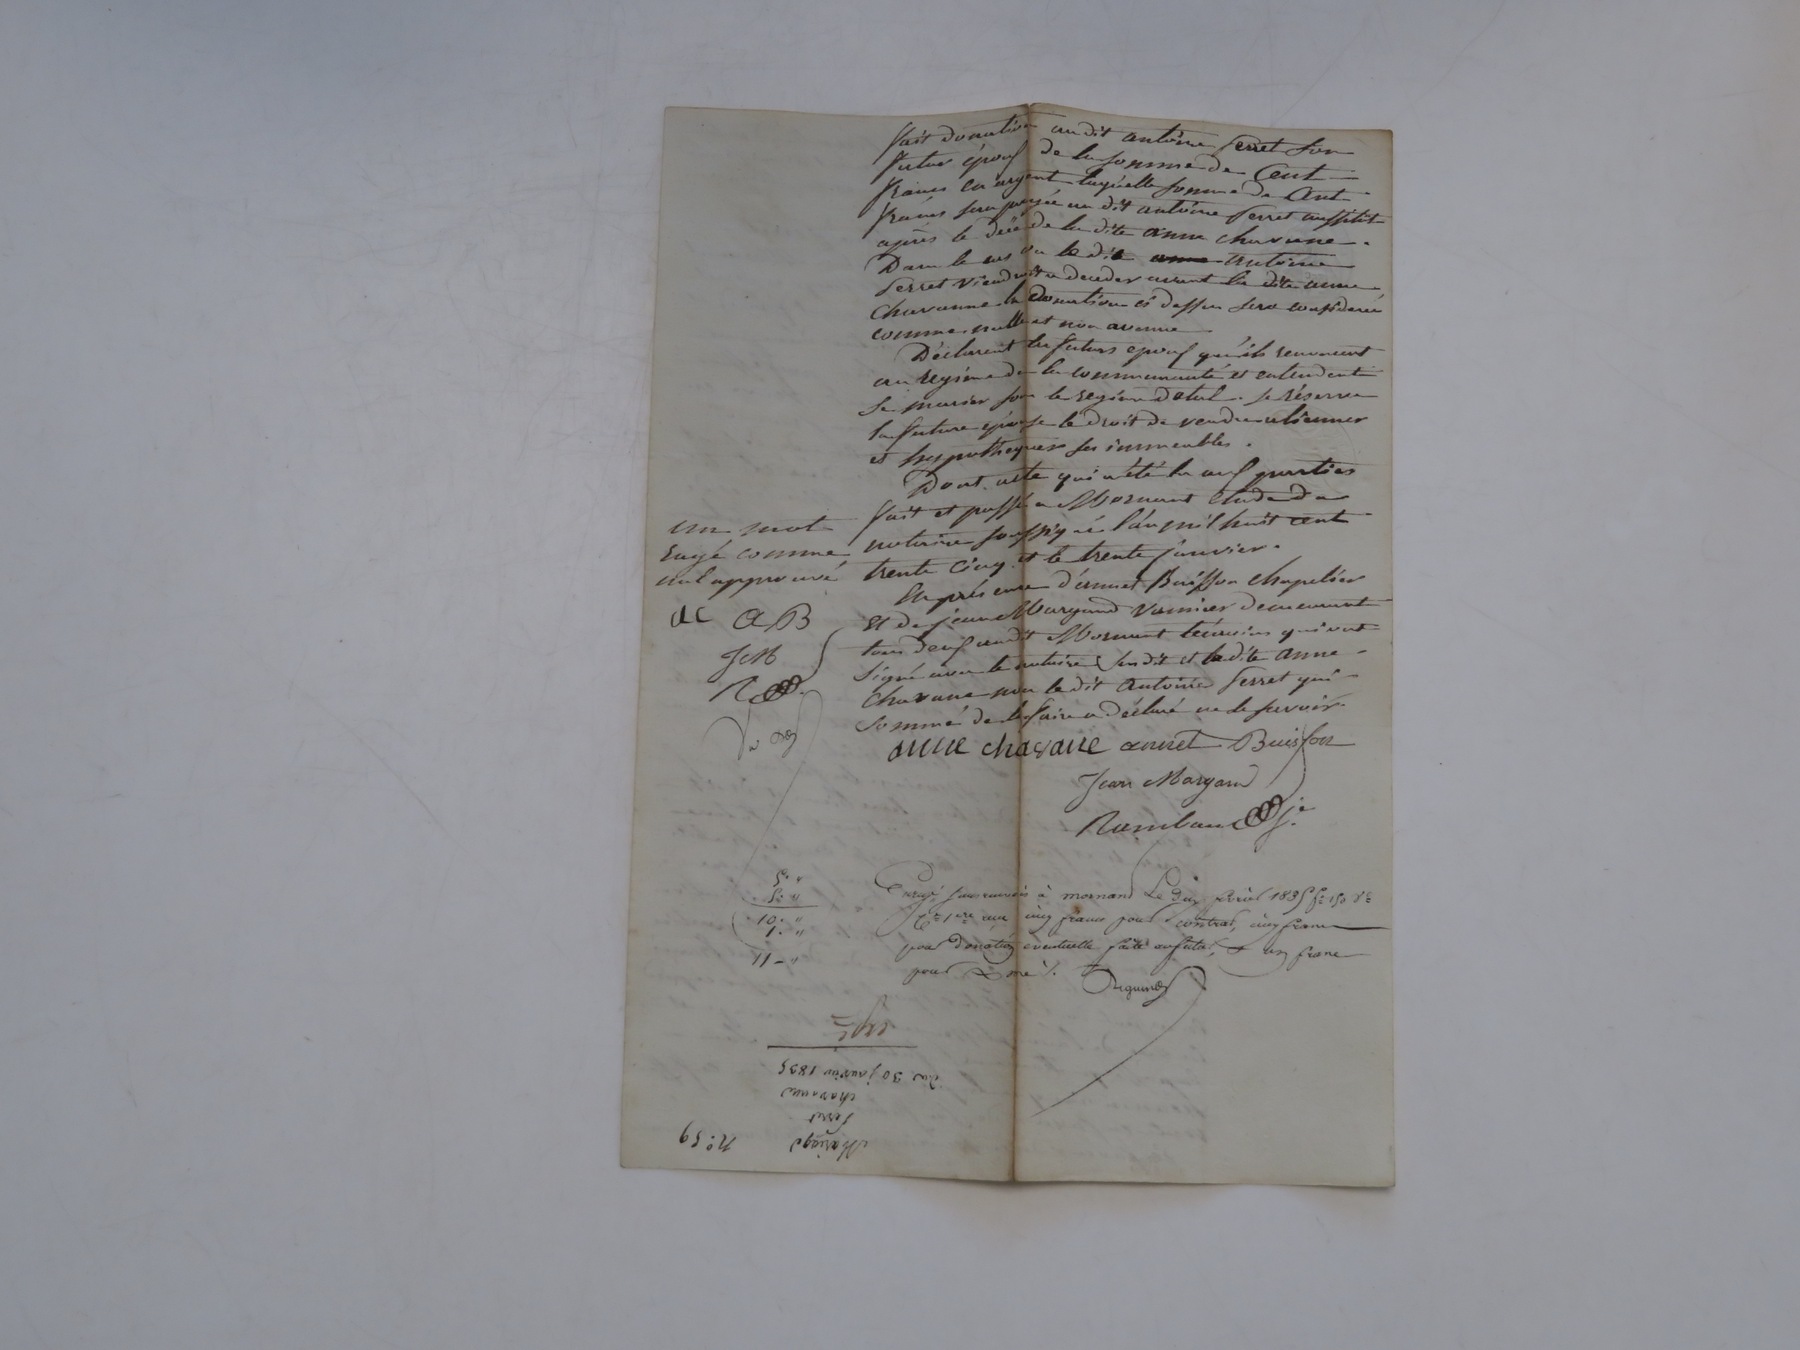 fait donation audit antoine ferret son
futur époux de la somme de Cent
francs en argent laquelle somme de Cent
francs sera payée au dit antoine ferret aussitôt
après le décè de la dite anne chavanne.
Dans le cas ou le dit anne antoine
ferret viendroit a deceder avant la dite anne
chavanne la donation ci dessus sera considerée
comme nulle et non avenue
Déclarent les futurs epoux qu'ils renoncent
au regime de la communauté et entendent
se marier sous le regime dotal. se réserve
la future épouse le droit de vendre aliener
et hypothequer ses immeubles.
Dont acte qui a été lu aux parties
fait et passé a Mornant Etude du
notaire soussigné l'an mil huit cent
trente cinq et le trente janvier.
En présence d'ennet Buisson chapelier
et de jean Margand vannier demeurant
tous deux audit Mornant témoins qui ont
signé avec le notaire susdit et la dite anne
chavane non le dit antoine ferret qui
sommé de le faire a déclaré ne le savoir.
un mot
rayé comme
nul approuvé
ac AB
JM
R
anne chavane ennet Buisson
Jean Margand
Rambaud
Enregé à mornant Le dix février 1835 fo 150 Vo
Ce 1ere reçu cinq francs pour contrat, cinq francs
pour donation eventuelle faite au futur, et un franc
pour Dme /.
5 "
5 "
10 "
1 "
11 - "
No 59
Mariage
ferret
chavanne
du 30 janvier 1835